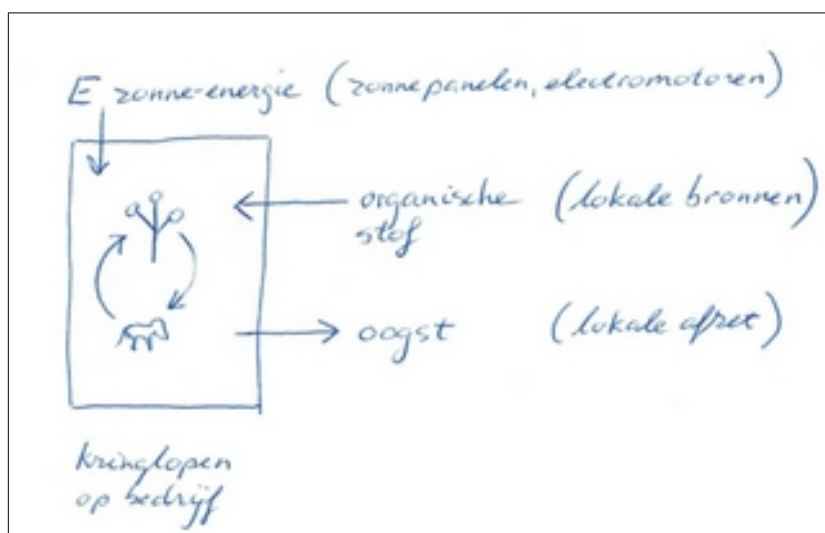 E zonne-energie (zonnepanelen, electromotoren)
organische (lokale bronnen)
stof
oogst (lokale afzet)
kringlopen
op bedrijf